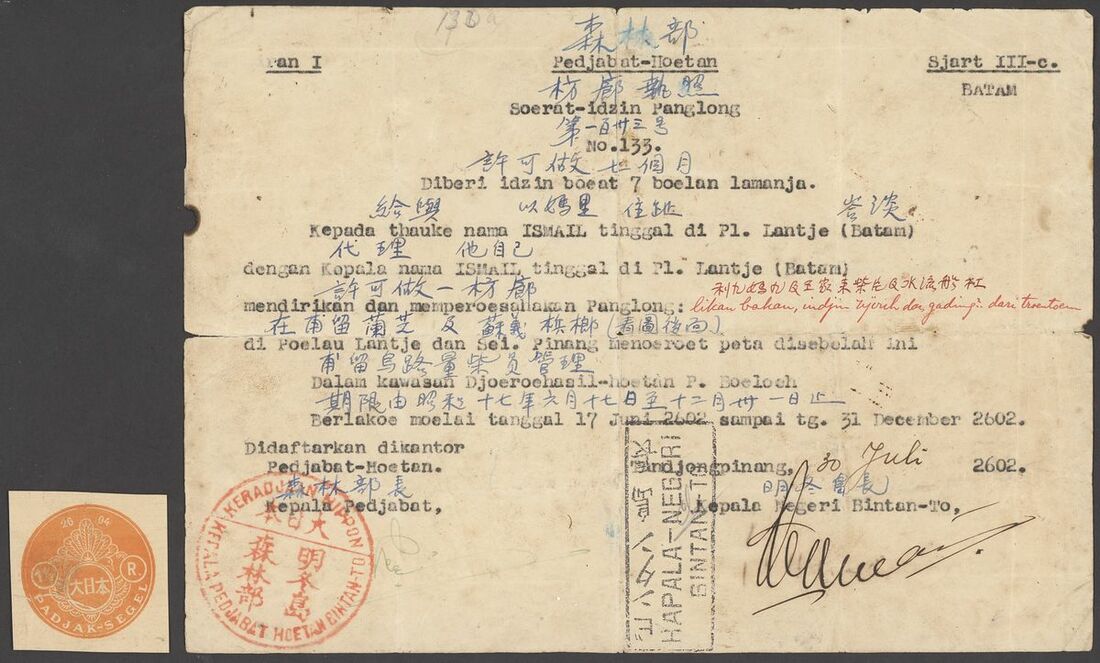 森林部
ran I Pedjabat-Hoetan Sjart III-c.
枋廊執照 BATAM
Soerat-idzin Panglong
第一百卅三号
No.133.
許可做七個月
Diberi idzin boeat 7 boelan lamanja.
給與 以媽里 住址 峇淡
Kepada thauke nama ISMAIL tinggal di Pl. Lantje (Batam)
代理 他自己
dengan Kepala nama ISMAIL tinggal di Pl. Lantje (Batam)
許可做一枋廊
mendirikan dan memperoesahakan Panglong: likan bahan, dari
在甫留蘭芝及蘇義梹榔(看圖後向)
di Poelau Lantje dan Sei. Pinang menoeroet peta disebelah ini
甫留烏路量柴员管理
Dalam kawasan Djoeroehasil-hoetan P. Boeloeh
期限由昭和十七年六月十七日至十二月卅一日止
Berlakoe moelai tanggal 17 Juni 2602 sampai tg. 31 December 2602.
Didaftarkan dikantor
Pedjabat-Hoetan. Tandjongpinang, 30 Juli 2602.
森林部長
Kepala Pedjabat, Kepala Negeri Bintan-To,
KERADJAAN NIPPON
大日本
明冬島
森林部
KEPALA PEDJABAT HOETAN BINTAN-TO
HAPALA-NEGRI
BINTAN-TO
26 04
大日本
R
PADJAK-SEGEL